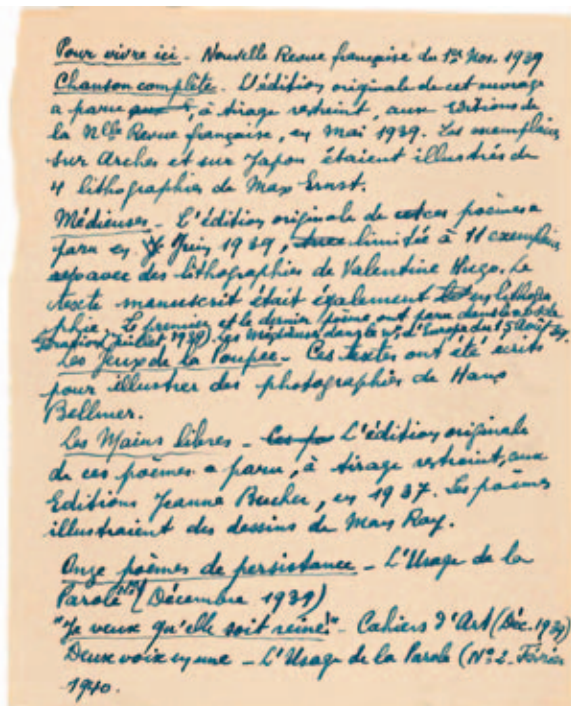 Pour vivre ici - Nouvelle Revue française du 1er Nov. 1939
Chanson complète - L'édition originale de cet ouvrage
a paru à tirage restreint, aux éditions de
la Nlle Revue française, en mai 1939. Les exemplaires
sur Arches et sur Japon étaient illustrés de
4 lithographies de Max Ernst.
Médieuses - L'édition originale de ces poèmes a
paru en Juin 1939, limitée à 11 exemplaires
avec des lithographies de Valentine Hugo. Le
texte manuscrit était également en lithogra
phie. Le premier et le dernier poème ont paru dans
(Juillet 1939). Les dans le n° d'Europe du 15 Août 39.
Les Jeux de la Poupée - Ces textes ont été écrits
pour illustrer des photographies de Hans
Bellmer.
Les Mains libres - L'édition originale
de ces poèmes a paru, à tirage restreint, aux
Editions Jeanne Bucher, en 1937. Les poèmes
illustraient des dessins de Man Ray.
Onze poèmes de persistance - L'Usage de la
Parole (Décembre 1939)
"Je veux qu'elle soit reine" - Cahiers d'Art (Déc. 1939)
Deux voix en une - L'Usage de la Parole (N° 2. Février
1940.